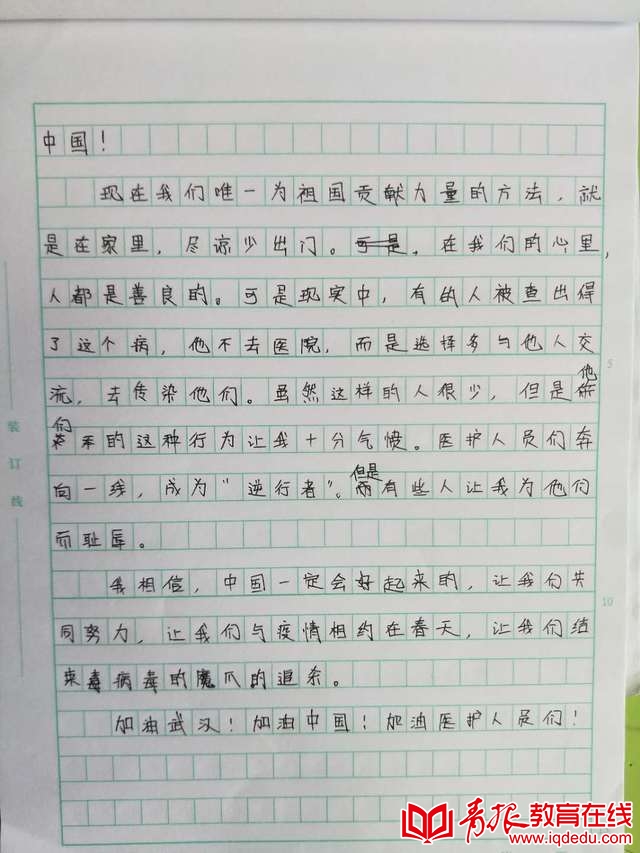 中国！
现在我们唯一为祖国贡献力量的方法，就
是在家里，尽谅少出门。可是，在我们的心里，
人都是善良的。可是现实中，有的人被查出得
了这个病，他不去医院，而是选择多与他人交
流，去传染他们。虽然这样的人很少，但是他
们的这种行为让我十分气愤。医护人员们奔
向一线，成为“逆行者”。但是有些人让我为他们
而耻辱。
我相信，中国一定会好起来的，让我们共
同努力，让我们与疫情相约在春天，让我们结
束毒病毒的魔爪的追杀。
加油武汉！加油中国！加油医护人员们！
装订线
5
10
青报教育在线
www.iqdedu.com